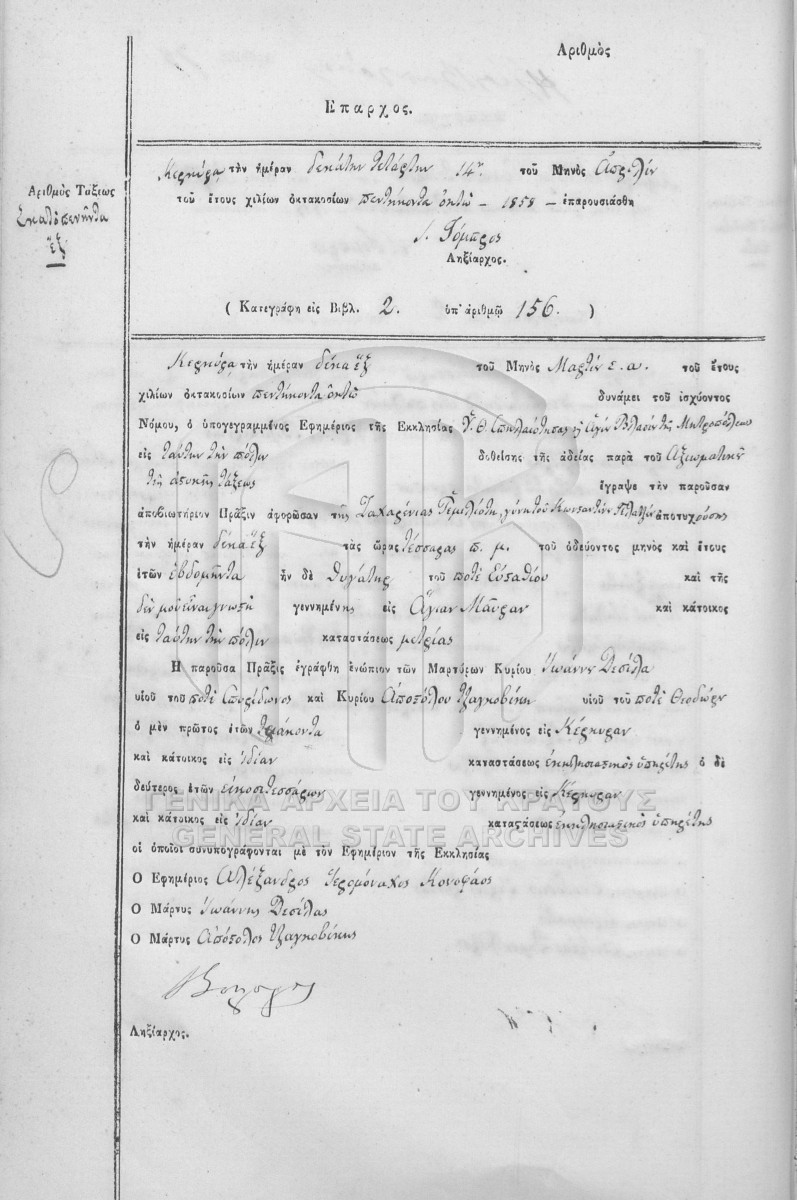 Αριθμὸς
Επαρχος.
Κερκύρᾳ τὴν ἡμέραν δεκάτην τετάρτην 14ην τοῦ Μηνὸς Ἀπριλίου
Αριθμὸς Τάξεως
Ἑκατὸ πενῆντα
ἕξ
τοῦ ἔτους χιλίων ὀκτακοσίων πεντήκοντα ὀκτὼ - 1858 - ἐπαρουσιάσθη
Ληξίαρχος.
( Κατεγράφη εἰς Βιβλ. 2. ὑπ' ἀριθμῷ 156. )
Κερκύρᾳ τὴν ἡμέραν δέκα ἓξ τοῦ Μηνὸς Μαρτίου ε. α. τοῦ ἔτους
χιλίων ὀκτακοσίων πεντήκοντα ὀκτὼ δυνάμει τοῦ ἰσχύοντος
Νόμου, ὁ ὑπογεγραμμένος Εφημέριος τῆς Εκκλησίας Ὑ. Θ. Σπηλαιότησας καὶ Ἁγίου Βλασίου τῆς Μητροπόλεως
εἰς ταύτην τὴν πόλιν δοθείσης τῆς ἀδείας παρὰ τοῦ Ἀξιωματικοῦ
τῆς ἀστυκῆς τάξεως ἔγραψε τὴν παροῦσαν
ἀποβιωτήριον Πρᾶξιν ἀφορῶσαν τῆς Ζαχαρένιας γύνη τοῦ Κωνσαντίνου ἀποτυχούσης
τὴν ἡμέραν δέκα ἓξ τὰς ὥρας τέσσαρας π. μ. τοῦ ὁδεύοντος μηνὸς καὶ ἔτους
ἐτῶν ἑβδομῆντα ἦν δὲ θυγάτηρ τοῦ ποτὲ Εὐσαθίου καὶ τῆς
δὲν μοῦ εἶναι γνωσὴ γεννημένης εἰς Ἁγίαν Μαῦραν καὶ κάτοικος
εἰς ταύτην τὴν πόλιν καταστάσεως μετρίας
Η παροῦσα Πρᾶξις ἐγράφθη ἐνώπιον τῶν Μαρτύρων Κυρίου Ἰωάννου Δεσίλα
υἱοῦ τοῦ ποτὲ Σπυρίδωνος καὶ Κυρίου Ἀποσόλου Τζαγκοβίκη υἱοῦ τοῦ ποτὲ Θεοδώρου
ὁ μὲν πρῶτος ἐτῶν τριάκοντα γεννημένος εἰς Κέρκυραν
καὶ κάτοικος εἰς ἰδίαν καταστάσεως ἐκκλησιασικὸς ὑπηρέτης ὁ δὲ
δεύτερος ἐτῶν εἰκοσιτεσσάρων γεννημένος εἰς Κέρκυραν
καὶ κάτοικος εἰς ἰδίαν καταςάσεως ἐκκλησιασικὸς ὑπηρέτης
οἱ ὁποῖοι συνυπογράφονται μὲ τὸν Εφημέριον τῆς Εκκλησίας
Ο Εφημέριος Ἀλέξανδρος Ἱερομόναχος Κονοφάος
Ο Μάρτυς Ἰωάννης Δεσίλας
Ο Μάρτυς Ἀπόσολος Τζαγκοβίκης
Ληξίαρχος.
ΓΕΝΙΚΑ ΑΡΧΕΙΑ ΤΟΥ ΚΡΑΤΟΥΣ
GENERAL STATE ARCHIVES